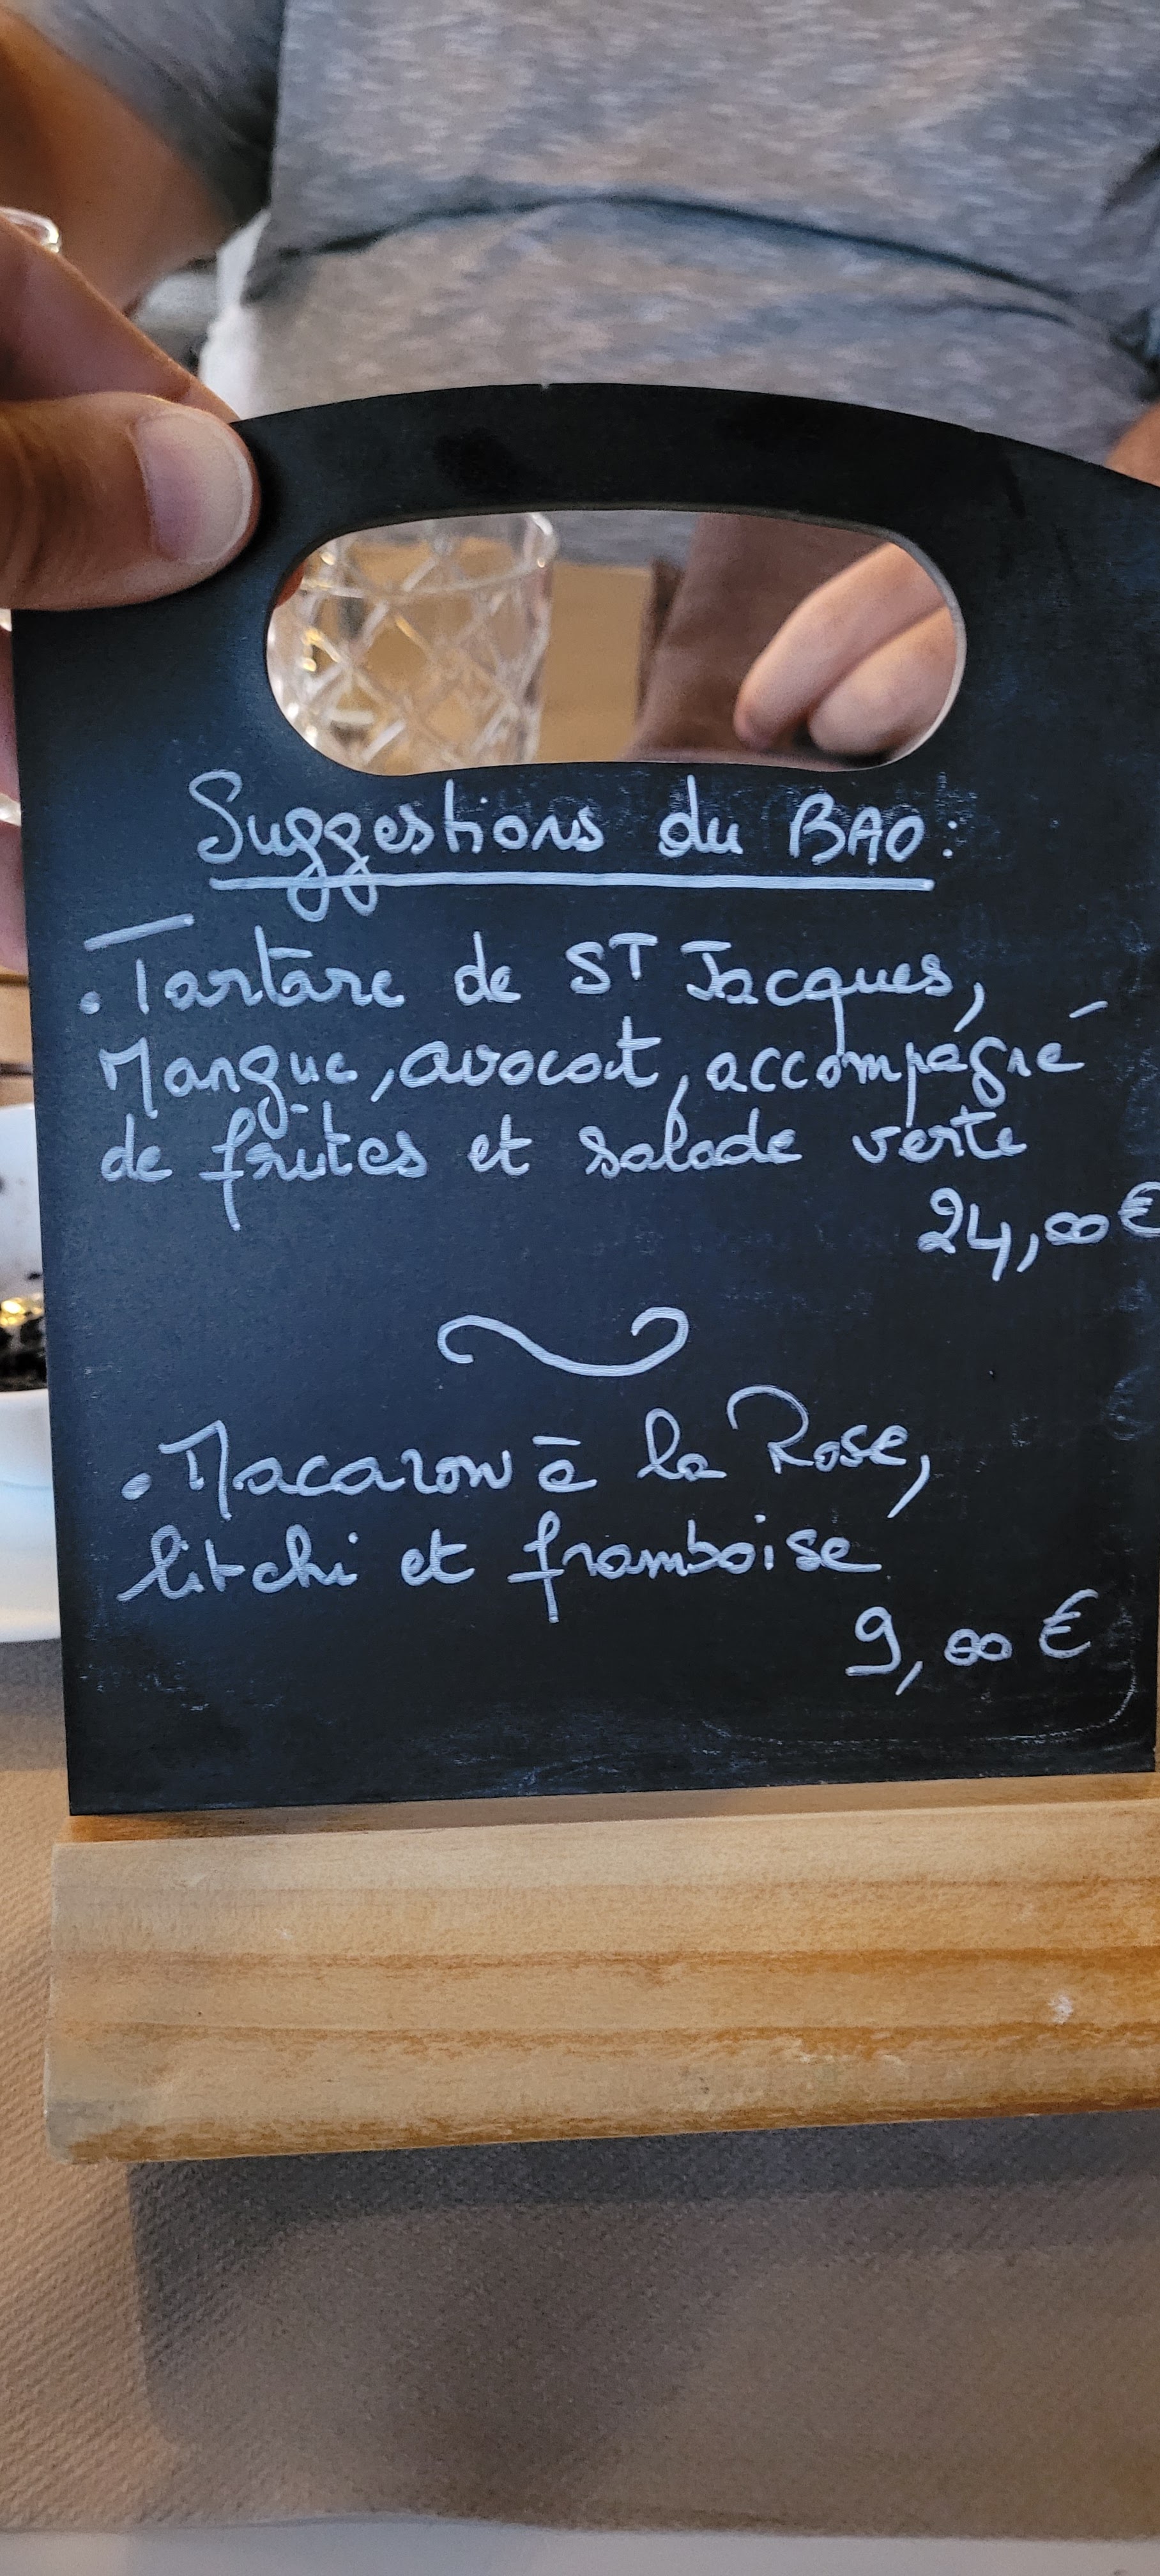 Suggestions du BAO:
• Tartare de ST Jacques,
Mangue, avocat, accompagné
de frites et salade verte
24,00€
• Macaron à la Rose,
litchi et framboise
9,00 €